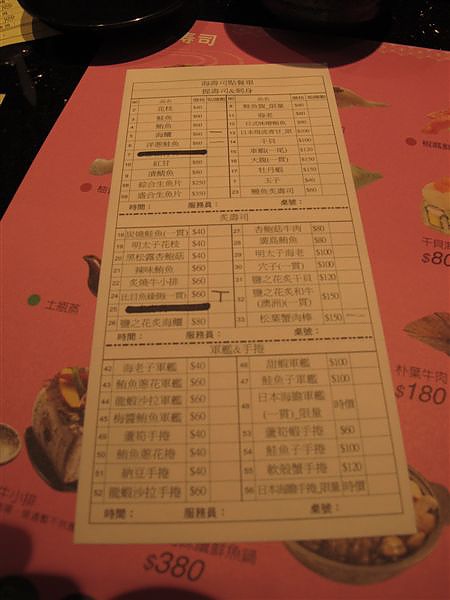 壽司
海壽司點餐單
握壽司&刺身
品名 價格 品名 價格
花枝 $40 鮭魚腹_限量 $80
鮭魚 $40 海老
鮪魚 $40
海鱺 $40
洋蔥鮭魚 $60 干貝 $100
紅甘 $80
漬鯖魚 $80 大腹(一貫) $150
綜合生魚片 $250 牡丹蝦 $150
盛合生魚片 $350 玉子 $40
鰻魚炙壽司 $60
時間： 服務員： 桌號：
炙壽司
18 炭燒鮭魚(一貫) $40 27 杏鮑菇牛肉 $80
19 明太子花枝 $40 28 廣島鮪魚 $80
20 黑松露杏鮑菇 $40 29 明太子海老 $100
21 辣味鮪魚 $60 30 穴子(一貫) $100
22 炙燒牛小排 $60 31 鹽之花炙干貝 $120
24 比目魚緣側(一貫) $60 32 鹽之花炙和牛(澳洲)(一貫) $150
25
26 鹽之花炙海鱺 $80 33 松葉蟹肉棒 $150
時間： 服務員： 桌號：
軍艦&手捲
42 海老子軍艦 $40 46 甜蝦軍艦 $100
43 鮪魚蔥花軍艦 $60 47 鮭魚子軍艦 $100
44 龍蝦沙拉軍艦 $60 48 日本海膽軍艦(一貫)_限量 時價
45 梅醬鮪魚軍艦 $60
49 蘆筍手捲 $40 53 蘆筍蝦手捲 $60
50 鮪魚蔥花捲 $40 54 鮭魚子手捲 $100
51 納豆手捲 $40 55 軟殼蟹手捲 $120
52 龍蝦沙拉手捲 $60 56 日本海膽手捲_限量 時價
時間： 服務員： 桌號：
土瓶蒸
干貝
$80
朴葉牛肉
$180
牛小排
鮮魚鍋
$380